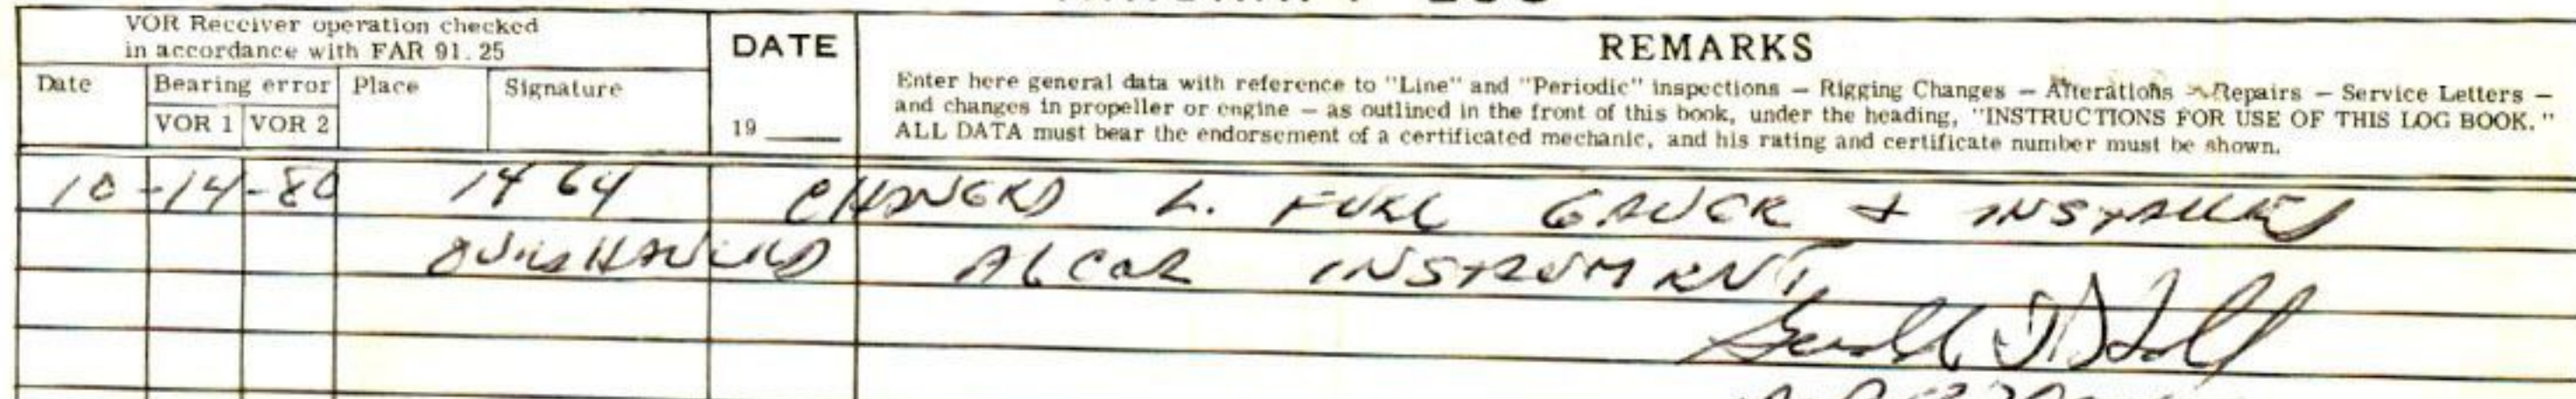 VOR Receiver operation checked
in accordance with FAR 91.25
DATE
REMARKS
Date
Bearing error
Place
Signature
VOR 1
VOR 2
19
Enter here general data with reference to "Line" and "Periodic" inspections — Rigging Changes — Alterations — Repairs — Service Letters —
and changes in propeller or engine — as outlined in the front of this book, under the heading, "INSTRUCTIONS FOR USE OF THIS LOG BOOK."
ALL DATA must bear the endorsement of a certificated mechanic, and his rating and certificate number must be shown.
10-14-80 1464 CHANGED L. FUEL GAUGE & INSTALLED
OVERHAULED ALCOR INSTRUMENT